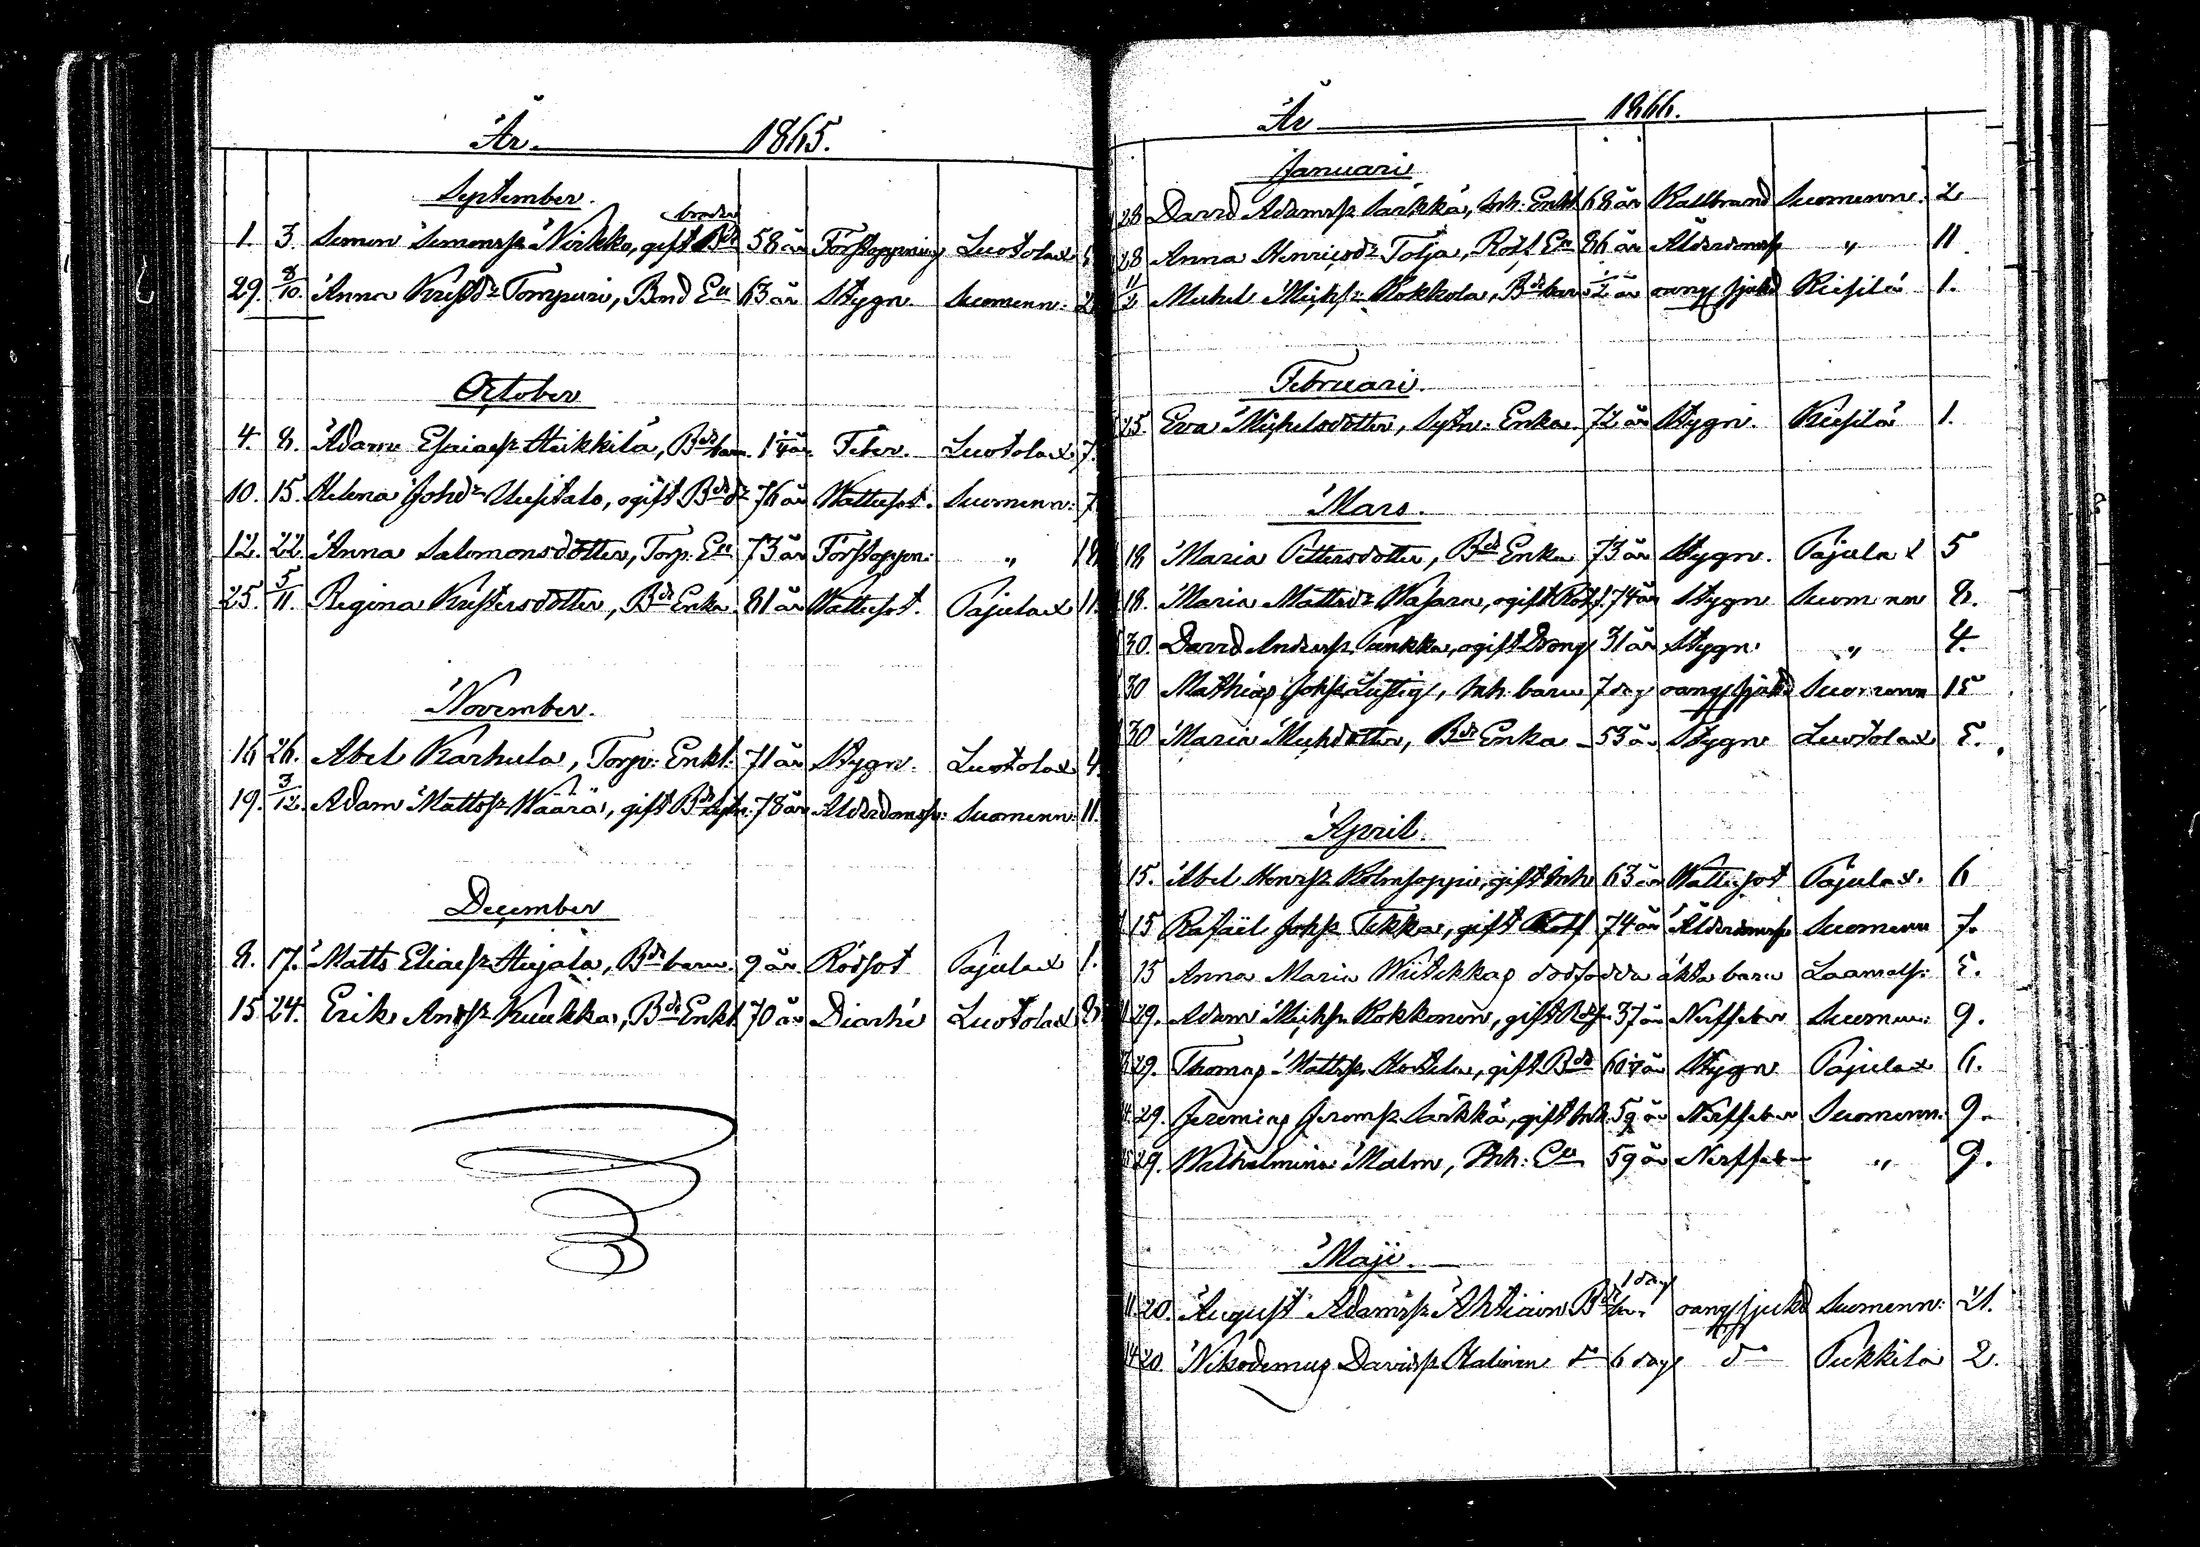 År 1865.
September.
broder
1. 3. Simon Simonss: Nirkko, gift Bde 58 år Förstoppning Luotolax
29. 8/10. Anna Kristdr Tompuri, Bond Ea 63 år Stygn. Suomenn: 2
October
4. 8. Adam Esaiass Heikkilä, Bde barn. 1 1/4 år. Feber. Luotolax 7.
10. 15. Helena Johdr Uusitalo, ogift Bdedr 76 år Wattusot. Suomenn: 7
12. 22. Anna Salomonsdotter, Torp: Ea 73 år Förstoppn: " 18
25. 5/11. Regina Kristersdotter, Bde Enka 81 år Wattusot. Pajulax 11.
November.
16 26. Abel Karhula, Torp: Enkl: 71 år Stygn. Luotolax 4.
19. 3/12. Adam Mattss: Määrä, gift Bde 78 år Ålderdomssv: Suomenn: 11.
December
8. 17. Matts Eliass Hujala, Bde barn. 9 år Rödsot Pajulax 1.
15 24. Erik Andss Kuukka, Bde Enkl 70 år Diarhé Luotolax 8
År 1866.
Januari
28 David Adamss Särkkä, Inh: Enkl 68 år Kallbrand Suomenn. 2
28 Anna Henricsdr Tolja, Rotf. Ea 86 år Ålderdomss " 11
11/2 Michel Michss: Kokkola, Bde barn 1/2 år okänd sjukd Riesilä 1.
Februari.
25. Eva Michelsdotter, Sytn: Enka. 72 år Stygn. Riesilä 1.
Mars.
18 Maria Pettersdotter, Bde Enka 73 år Stygn. Pajulax 5
18. Maria Mattsdr Wasara, ogift Rotf. 74 år Stygn Suomenn 8.
30. David Anderss. Punkka, ogift Dräng 31 år Stygn. " 4.
30 Mathias Johss Lustig, Inh. barn 7 dag okänd sjukd Suomenn 15
30 Maria Michsdotter, Bde Enka 53 år Stygn Luotolax 5.
April.
15. Abel Henrss Kolmsoppi, gift Inh 63 år Wattusot Pajulax. 6
15 Rafael Johss Tikka, gift Rotf 74 år Ålderdomss Suomenn 7.
15 Anna Maria Wiitikkas dödfödda äkta barn Laamals: 5.
29. Adam Michss Kokkonen, gift 37 år Nerffeber Suomenn: 9.
29. Thomas Mattss. Hostila, gift Bde år Stygn Pajulax 6.
29. Jeremias Jeremss Särkkä, gift Inh. 59 år Nerffeber Suomenn. 9.
29. Wilhelmina Malm, Inh: Ea 59 år Nerffeber " 9.
Maji.
1 dag
11. 20. August Adamss: Ahtiain Bde bn. okänd sjukd Suomenn: 21.
14 20. Nikodemus Davidss Halinen do 6 dag do Pukkila 2.